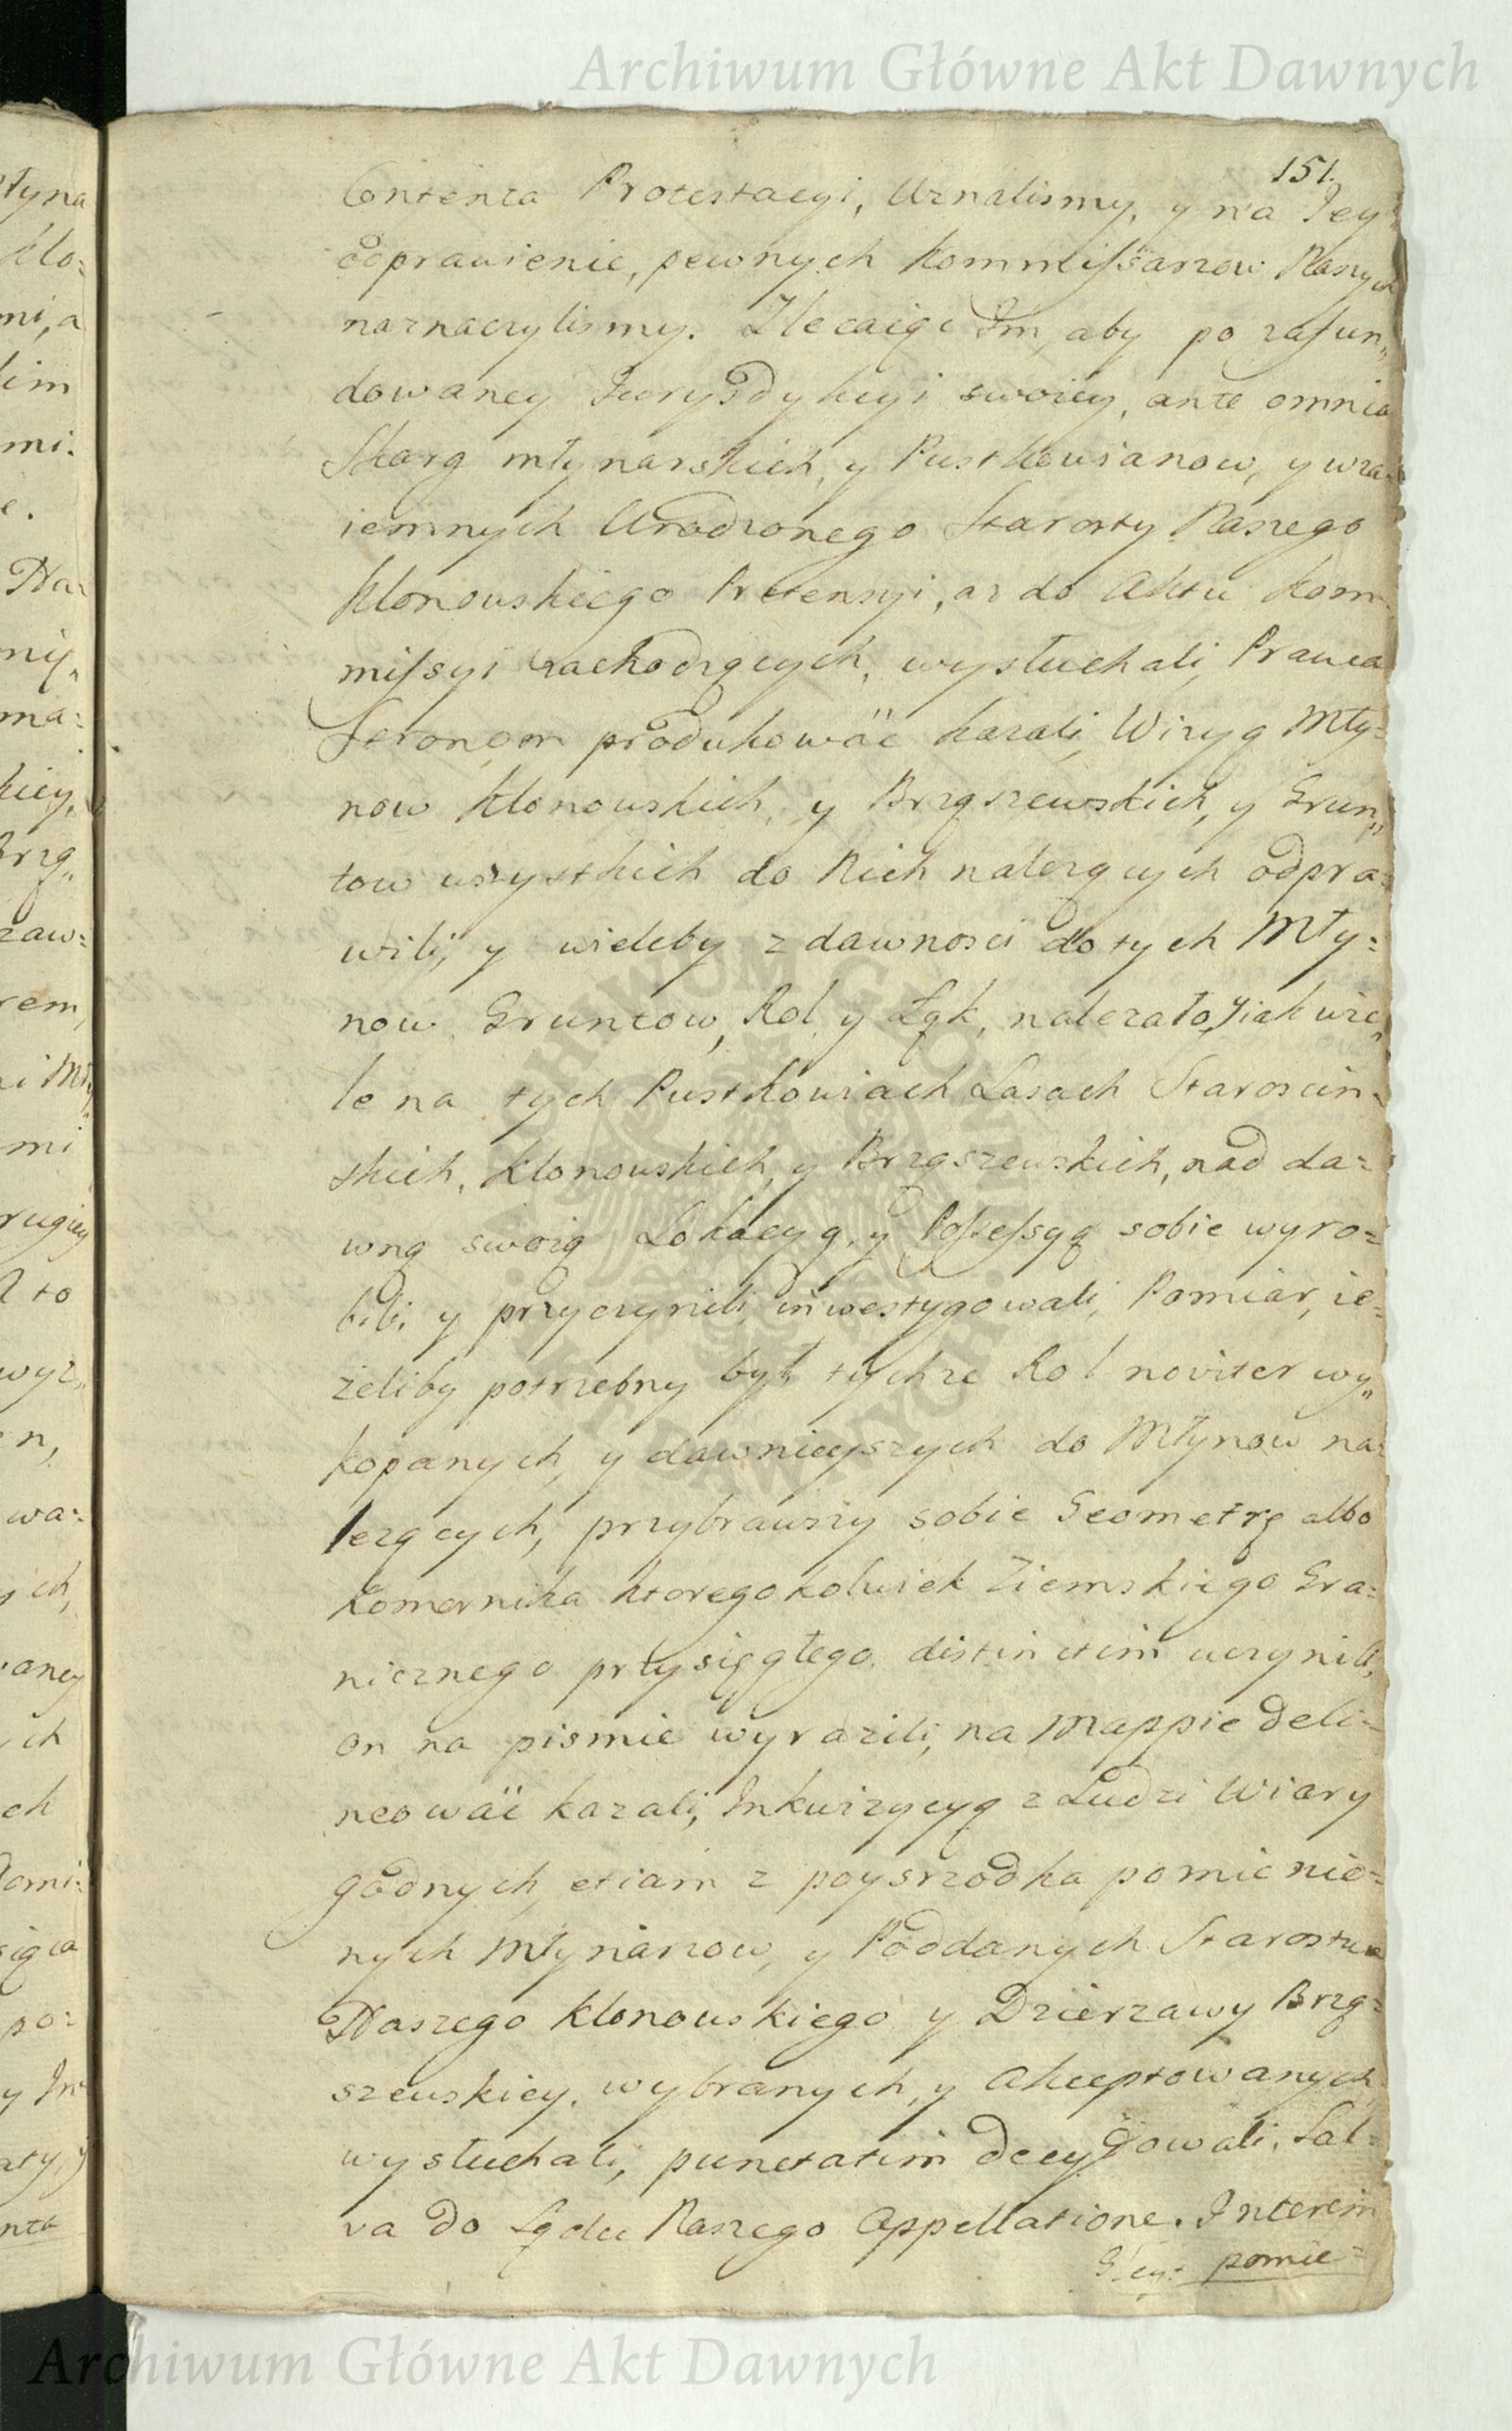 Archiwum Główne Akt Dawnych
151.
Contenta Protestacyi, Uznalismy, y na Jey
odprawienie, pewnych Kommissarzow Naszych
naznaczylismy. Zlecaiąc Im, aby po zafun„
dowaney Jurysdykcyi swoiey, ante omnia
Skarg młynarskich, y Pustkowianow, y wza=
iemnych Urodzonego Starosty Naszego
Klonowskiego Pretensyi, az do Aktu Kom=
missyi zachodzących, wysłuchali, Prawa
Stronom produkować kazali, Wizyą Mły=
now Klonowskich, y Brząszewskich, y Grun„
tow wszystkich do Nich nalezących odpra=
wili, y wieleby z dawnosci do tych Mły=
now Gruntow, Rol y Łąk, nalezało, y iak wie„
le na tych Pustkowiach Lasach Staroscin=
skich, Klonowskich, y Brząszewskich, nad da=
wną swoią Lokacyą, y Possessyą sobie wyro=
bili, y przyczynili, inwestygowali, Pomiar, ie=
żeliby potrzebny był, tychze Rol noviter wy„
kopanych, y dawnieyszych do Młynow na=
lezących, przybrawszy sobie Geometrę albo
Komornika ktoregokolwiek Ziemskiego Gra=
nicznego przysięgłego, distinctim uczynili,
on na pismie wyrazili, na Mappie deli=
neować kazali, Inkwizycyą z Ludzi Wiary
godnych, etiam z posrzodka pomienio=
nych Młynarzow, y Poddanych Starostwa
Naszego Klonowskiego y Dzierzawy Brzą=
szewskiey, wybranych, y Akceptowanych,
wysłuchali, punctatim decydowali, Sal=
va do Sądu Naszego Appellatione. Interim
pomie=
Archiwum Główne Akt Dawnych